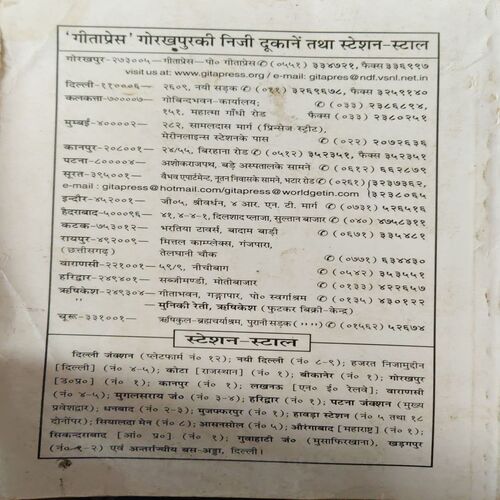 'गीताप्रेस' गोरखपुरकी निजी दूकानें तथा स्टेशन-स्टाल
गोरखपुर-२७३००५—गीताप्रेस—पो० गीताप्रेस ✆ (०५५१) ३३४७२१, फैक्स ३३६९९७
visit us at: www.gitapress.org / e-mail: gitapres@ndf.vsnl.net.in
दिल्ली-११०००६— २६०९, नयी सड़क ✆ (०११) ३२६९६७८, फैक्स ३२५९१४०
कलकत्ता-७००००७— गोबिन्दभवन-कार्यालय; ✆ (०३३) २३८६८९४,
१५१, महात्मा गाँधी रोड फैक्स (०३३) २३८०२५१
मुम्बई-४००००२— २८२, सामलदास मार्ग (प्रिन्सेज स्ट्रीट),
मेरीनलाइन्स स्टेशनके पास ✆ (०२२) २०७२६३६
कानपुर-२०८००१— २४/५५, बिरहाना रोड ✆ (०५१२) ३५२३५१, फैक्स ३५२३५१
पटना-८००००४— अशोकराजपथ, बड़े अस्पतालके सामने ✆ (०६१२) ६६२८७९
सूरत-३९५००१— वैभव एपार्टमेन्ट, नूतन निवासके सामने, भटार रोड ✆ (०२६१) ३२३७३६२,
e-mail : gitapress@hotmail.com/gitapress@worldgetin.com ३२३८०६५
इन्दौर-४५२००१— जी०५, श्रीवर्धन, ४ आर. एन. टी. मार्ग ✆ (०७३१) ५२६५१६
हैदराबाद-५०००९६— ४१, ४-४-१, दिलशाद प्लाजा, सुल्तान बाजार ✆ (०४०) ४७५८३११
कटक-७५३०१२— भरतिया टावर्स, बादाम बाड़ी ✆ (०६७१) ३३५४८१
रायपुर-४९२००९— मित्तल काम्प्लेक्स, गंजपारा,
(छत्तीसगढ़) तेलघानी चौक ✆ (०७७१) ६३४४३०
वाराणसी-२२१००१— ५९/९, नीचीबाग ✆ (०५४२) ३५३५५१
हरिद्वार-२४९४०१— सब्जीमण्डी, मोतीबाजार ✆ (०१३३) ४२२६५७
ऋषिकेश-२४९३०४— गीताभवन, गङ्गापार, पो० स्वर्गाश्रम ✆ (०१३५) ४३०१२२
" — मुनिकी रेती, ऋषिकेश (फुटकर बिक्री-केन्द्र)
चूरू-३३१००१— ऋषिकुल-ब्रह्मचर्याश्रम, पुरानी सड़क (,,,,) ✆ (०१५६२) ५२६७४
स्टेशन-स्टाल
दिल्ली जंक्शन (प्लेटफार्म नं० १२); नयी दिल्ली (नं० ८-९); हजरत निजामुद्दीन
[दिल्ली] (नं० ४-५); कोटा [राजस्थान] (नं० १); बीकानेर (नं० १); गोरखपुर
[उ०प्र०] (नं० १); कानपुर (नं० १); लखनऊ [एन० ई० रेलवे]; वाराणसी
(नं० ४-५); मुगलसराय जं० (नं० ३-४); हरिद्वार (नं० १); पटना जंक्शन (मुख्य
प्रवेशद्वार); धनबाद (नं० २-३); मुजफ्फरपुर (नं० १); हावड़ा स्टेशन (नं० ५ तथा १८
दोनोंपर); सियालदा मेन (नं० ८); आसनसोल (नं० ५); औरंगाबाद [महाराष्ट्र] (नं० १);
सिकन्दराबाद [आं० प्र०] (नं० १); गुवाहाटी जं० (मुसाफिरखाना), खड़गपुर
(नं० १-२) एवं अन्तर्राज्यीय बस-अड्डा, दिल्ली।